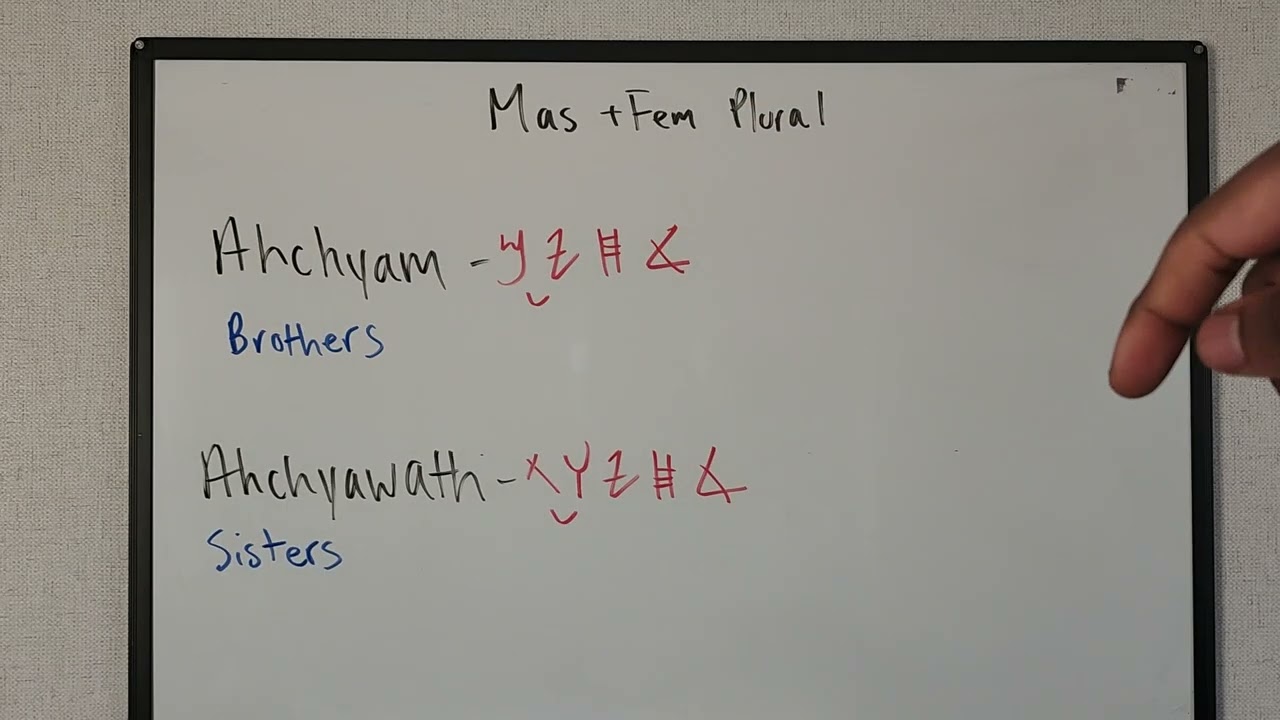 Mas + Fem Plural
Ahchyam - 𐤀𐤇𐤉𐤌
Brothers
Ahchyawath - 𐤀𐤇𐤉𐤅𐤕
Sisters